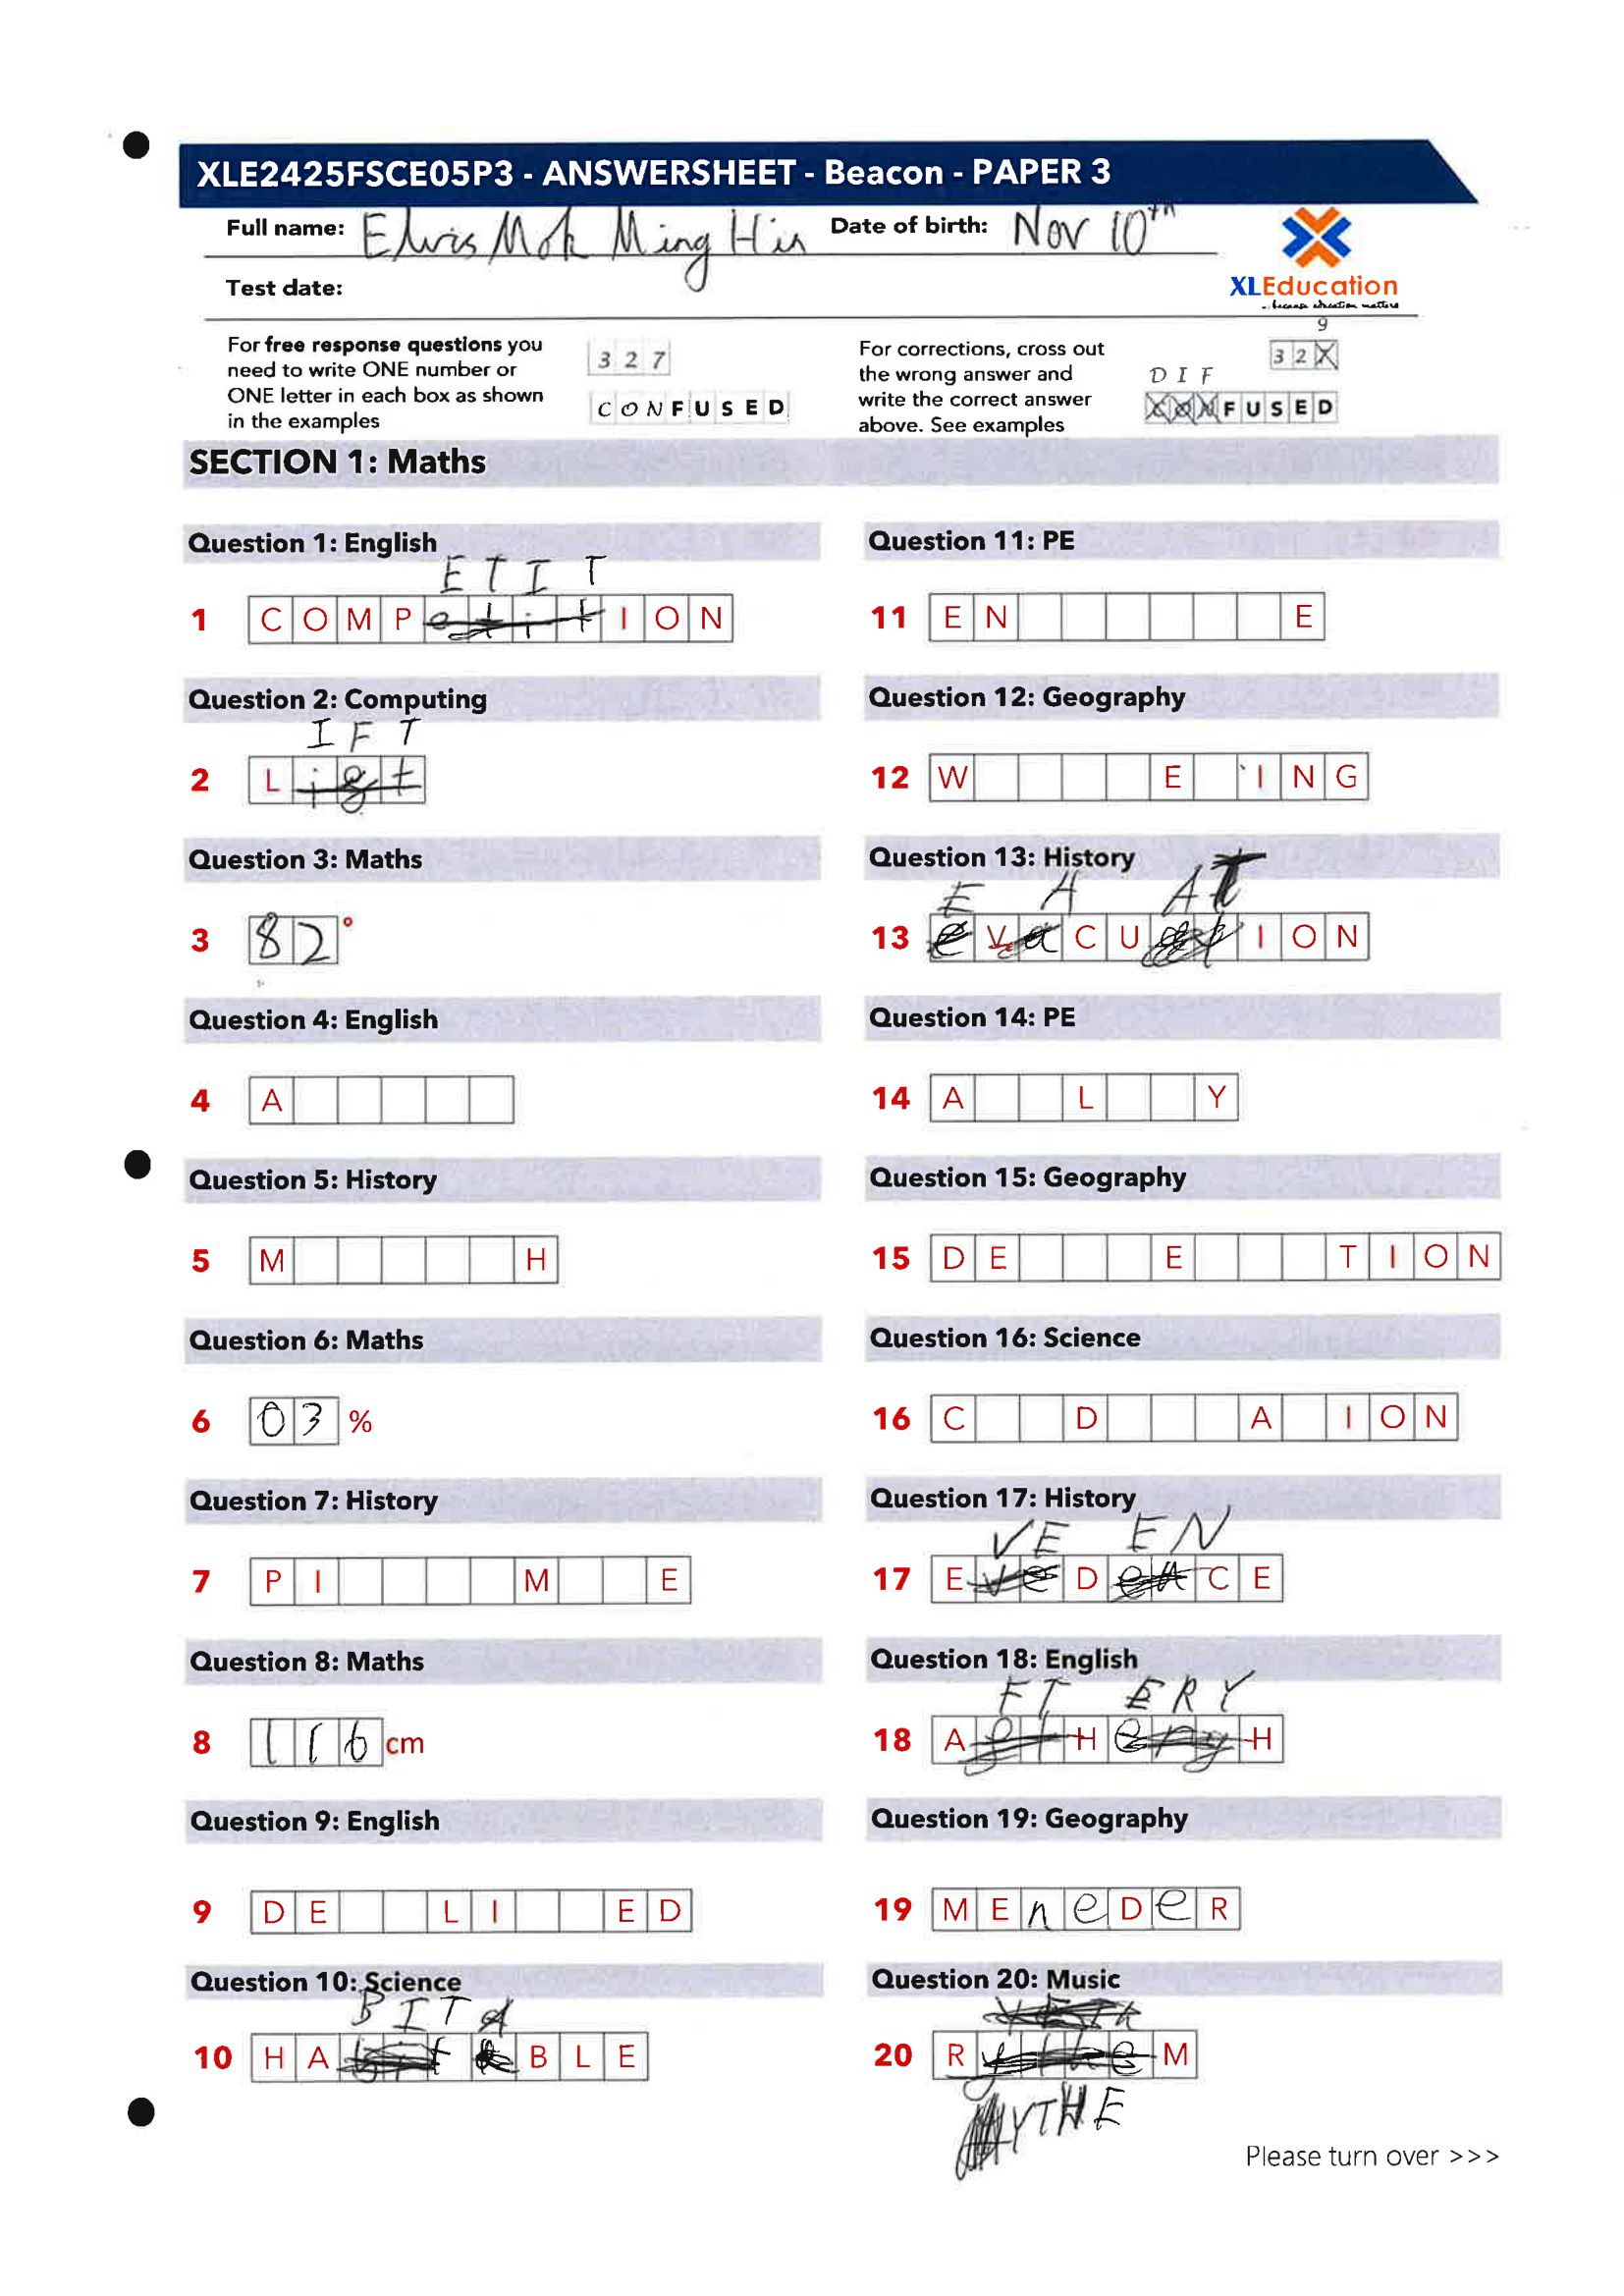 XLE2425FSCE05P3 - ANSWERSHEET - Beacon - PAPER 3
Full name: Elvis Mok Ming Hin Date of birth: Nov 10th
Test date:
XLEducation
... because education matters
For free response questions you need to write ONE number or ONE letter in each box as shown in the examples
3 2 7
C O N F U S E D
For corrections, cross out the wrong answer and write the correct answer above. See examples
9
3 2 X
D I F
C O N F U S E D
SECTION 1: Maths
Question 1: English
E T I T
1 C O M P e t i t I O N
Question 2: Computing
I F T
2 L i g t
Question 3: Maths
3 8 2 °
Question 4: English
4 A
Question 5: History
5 M H
Question 6: Maths
6 0 3 %
Question 7: History
7 P I M E
Question 8: Maths
8 1 1 6 cm
Question 9: English
9 D E L I E D
Question 10: Science
B I T A
10 H A B L E
Question 11: PE
11 E N E
Question 12: Geography
12 W E I N G
Question 13: History
E A A T
13 e V a C U I O N
Question 14: PE
14 A L Y
Question 15: Geography
15 D E E T I O N
Question 16: Science
16 C D A I O N
Question 17: History
V E E N
17 E v e D e n C E
Question 18: English
F T E R Y
18 A H H
Question 19: Geography
19 M E n e D e R
Question 20: Music
20 R y t h e M
Y T H E
Please turn over >>>